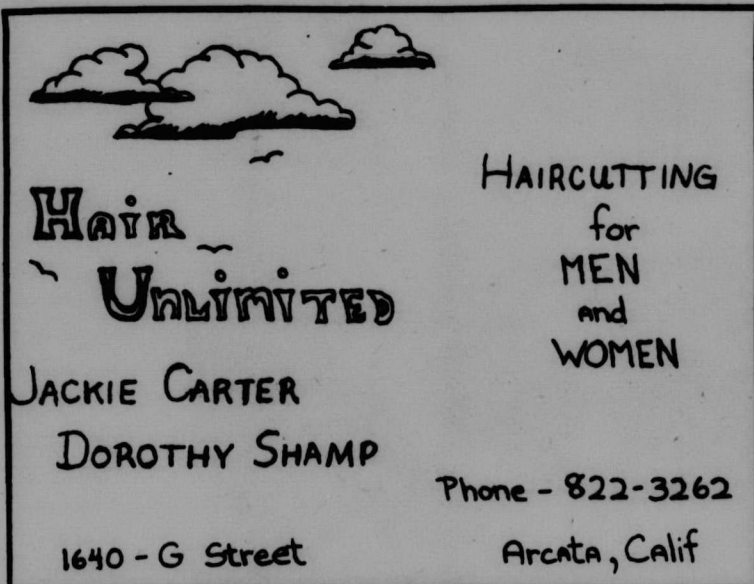 Hair
Unlimited
Jackie Carter
Dorothy Shamp
1640 - G Street
Haircutting
for
MEN
and
WOMEN
Phone - 822-3262
Arcata, Calif